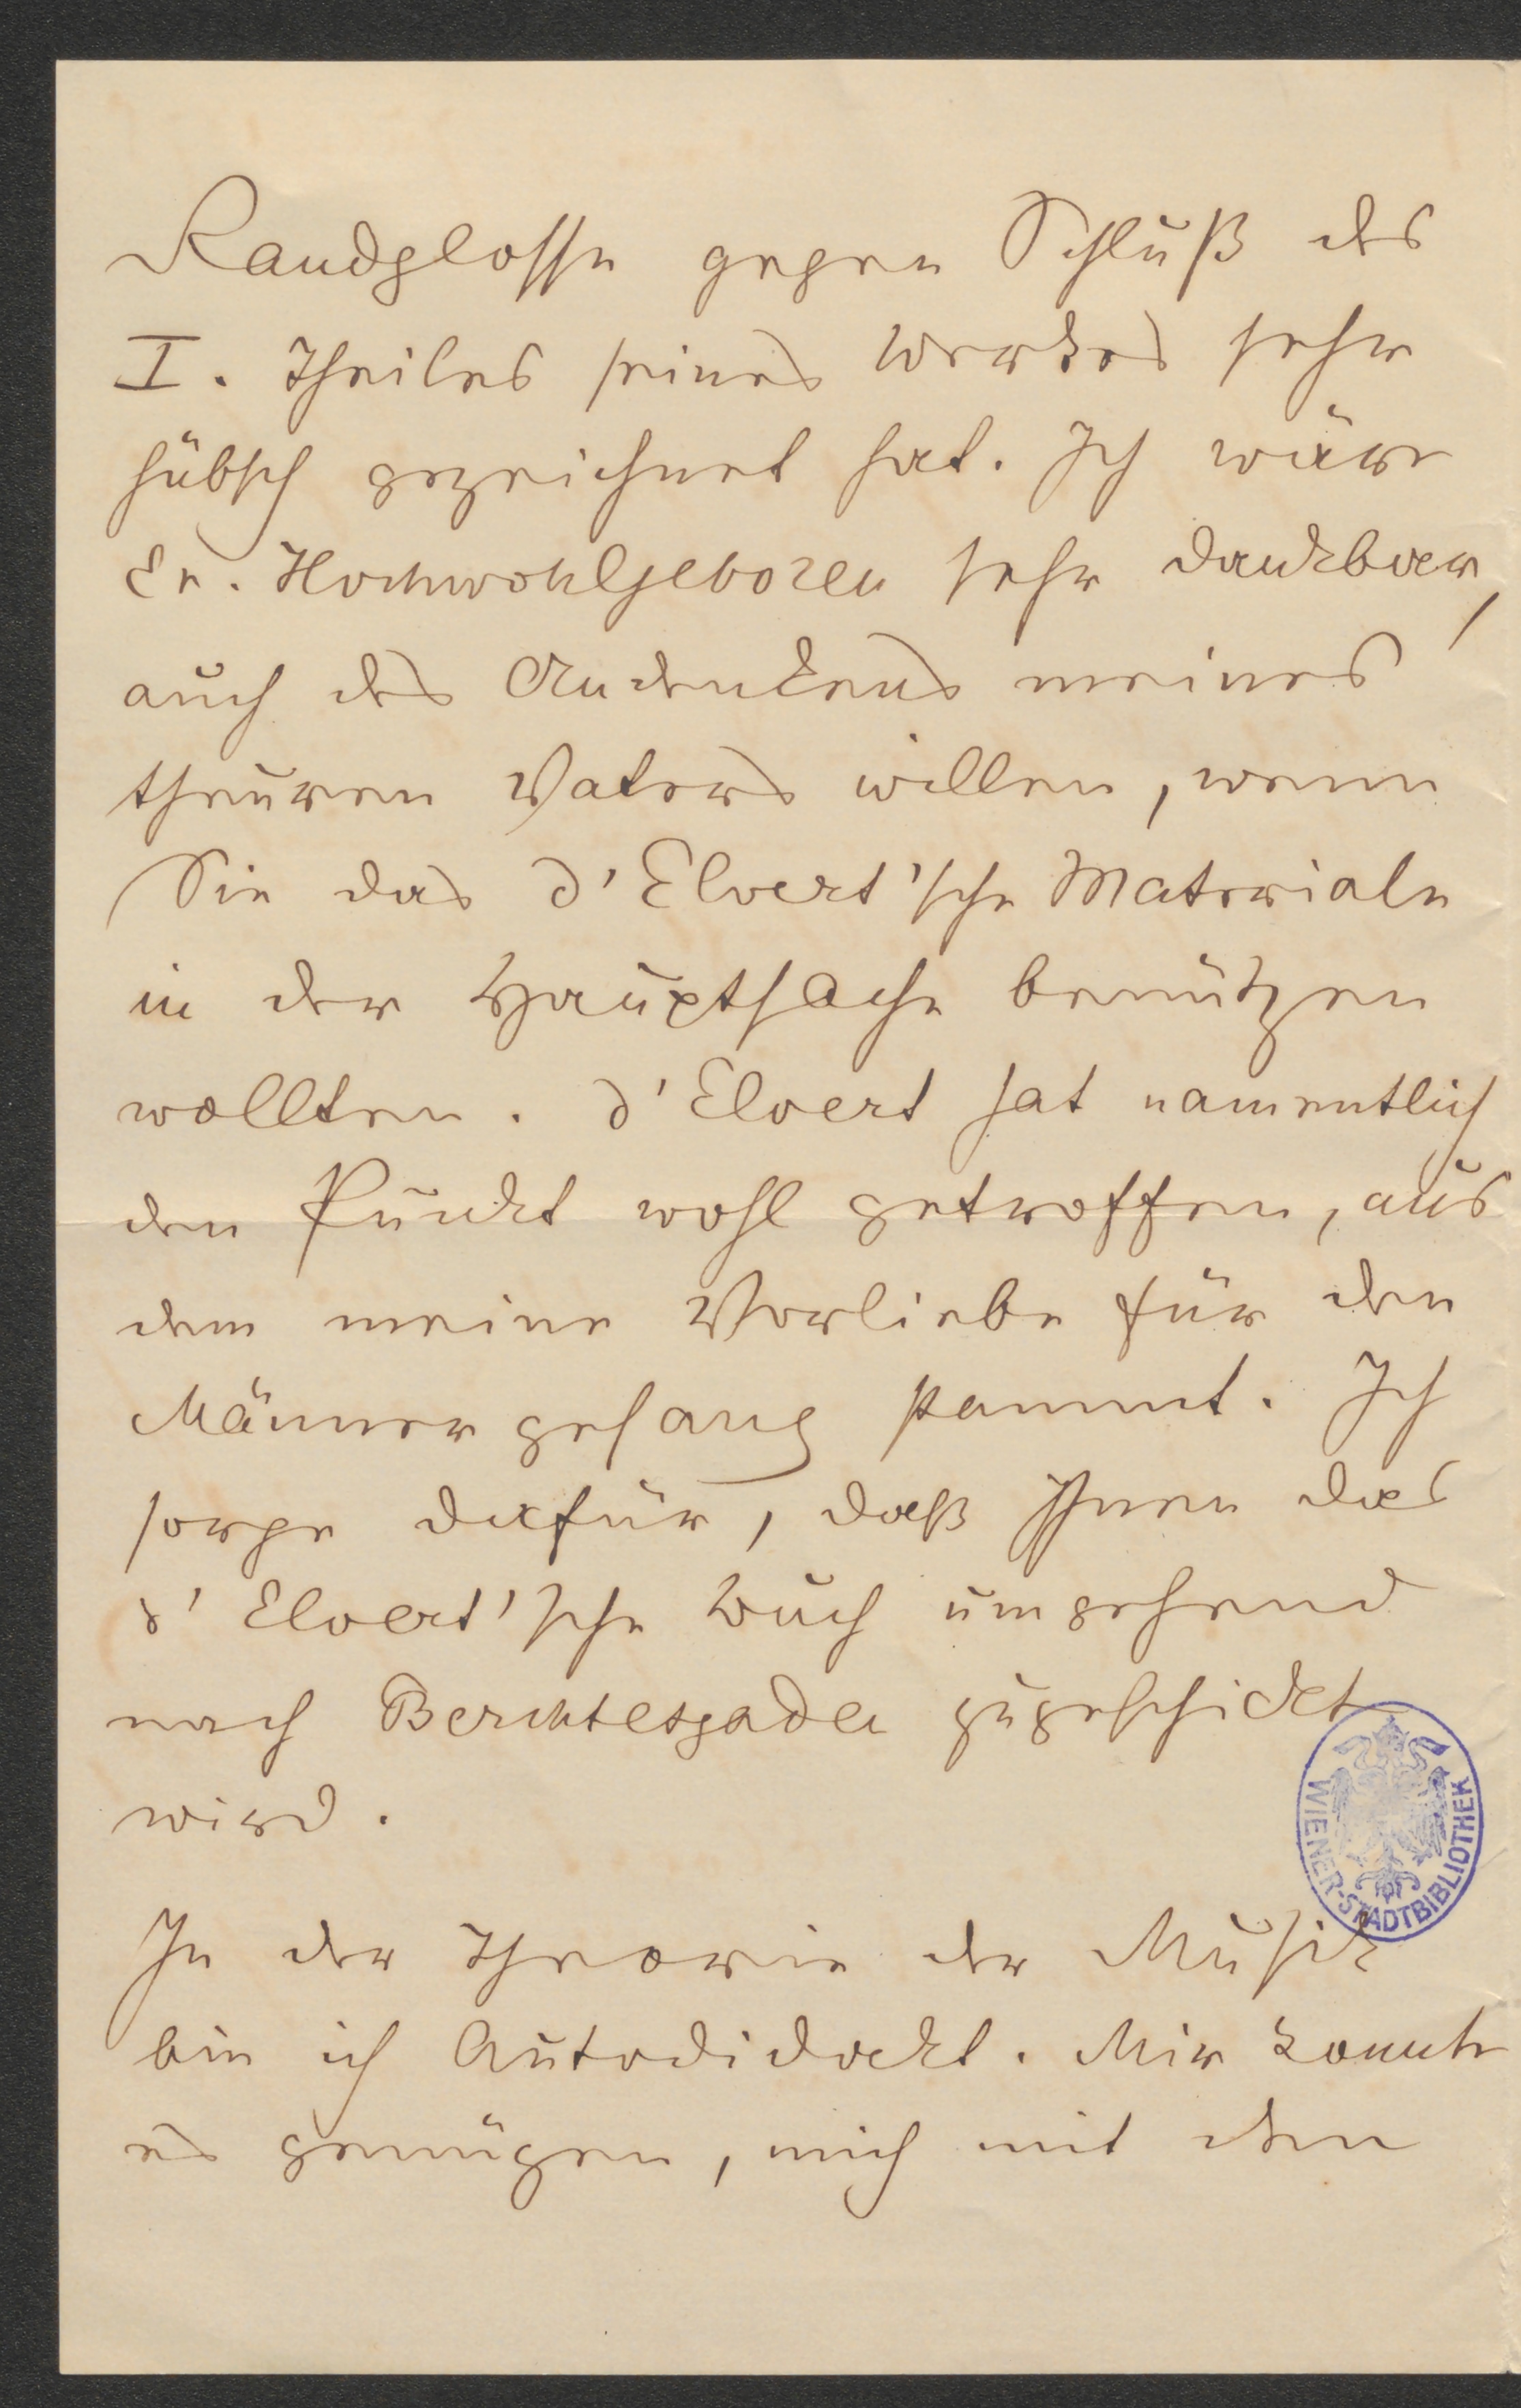 Randglosse gegen Schluß des
I. Theiles seines Werkes sehr
hübsch gezeichnet hat. Ich wäre
Er. Hochwohlgeboren sehr dankbar,
auch des Andenkens meines
theuren Vaters willen, wenn
Sie das d'Elvert'sche Materiale
in der Hauptsache benützen
wollten. d'Elvert hat namentlich
den Punckt wohl getroffen, aus
dem meine Vorliebe für den
Männergesang stammt. Ich
sorge dafür, daß Ihnen das
d'Elvert'sche Buch umgehend
nach Berchtesgaden zugeschickt
wird.
WIENER-STADTBIBLIOTHEK
In der Theorie der Musik
bin ich Autodidackt. Mir konnte
es genügen, mich mit dem